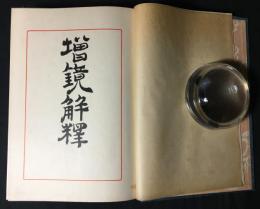 增鏡解釋